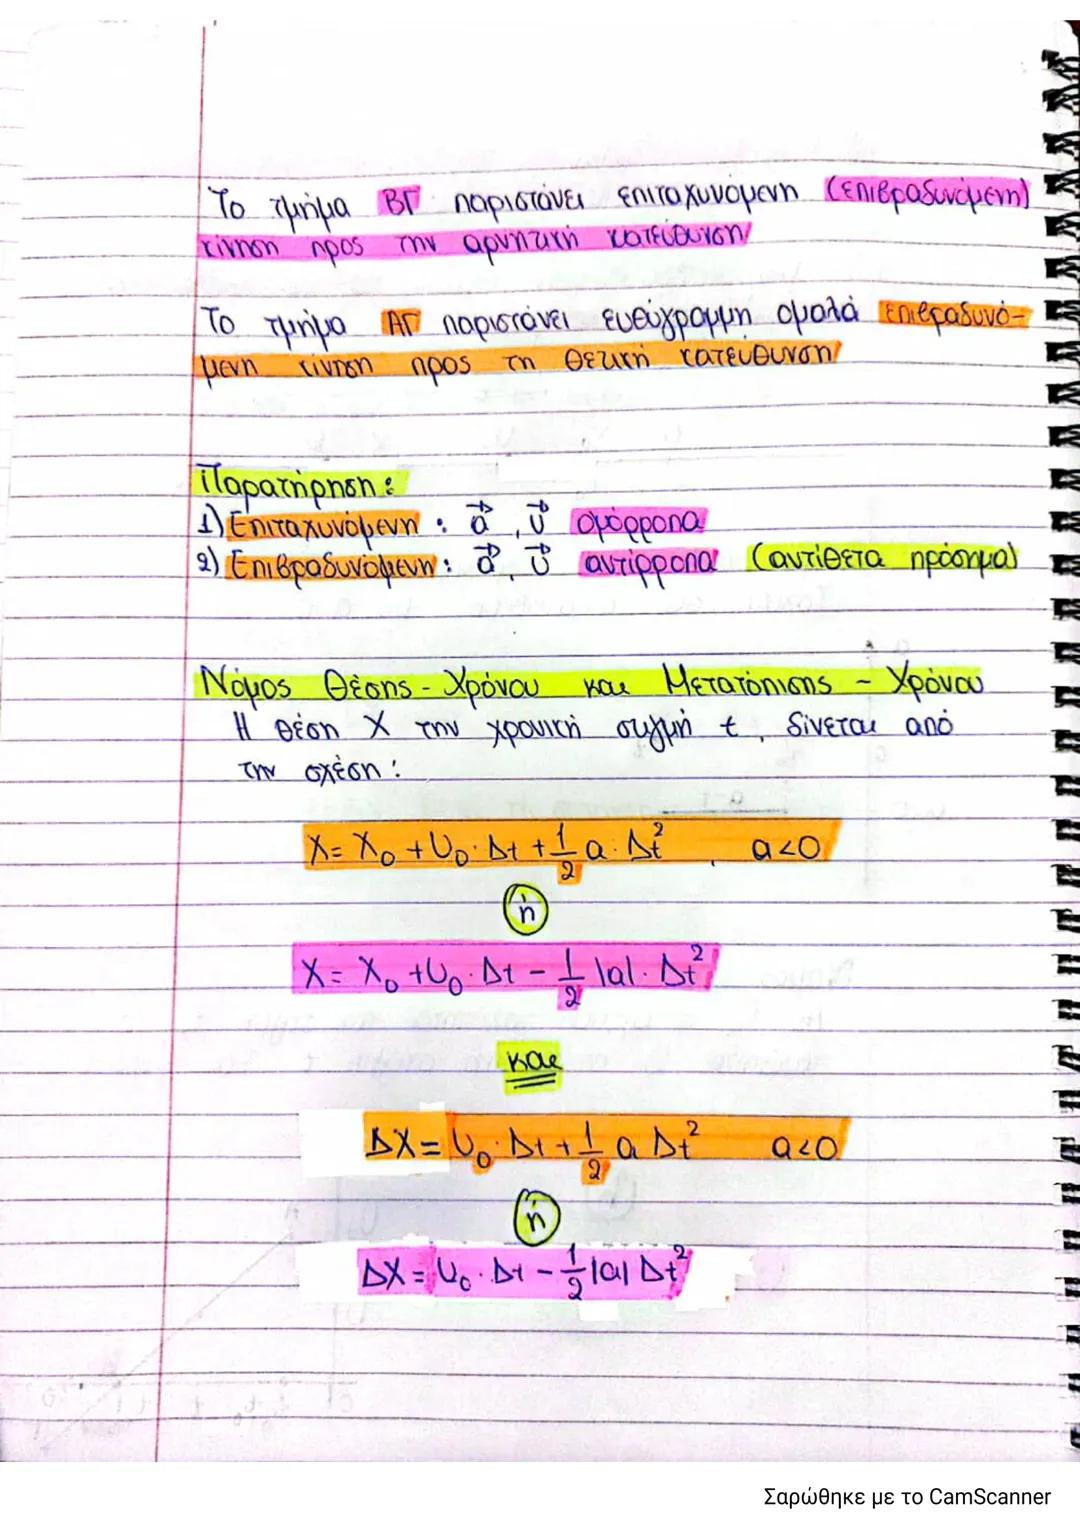 Το τμήμα ΒΓ παριστάνει επιταχυνόμενη (επιβραδυνόμενη)
κίνηση προς την αρνητική κατεύθυνση
Το τμήμα ΑΓ παριστάνει ευθύγραμμη ομαλά επιβραδυνό-
μενη κίνηση προς τη θετική κατεύθυνση
Παρατήρηση:
1) Επιταχυνόμενη: a⃗, υ⃗ ομόρροπα
2) Επιβραδυνόμενη: a⃗, υ⃗ αντίρροπα (αντίθετα πρόσημα)
Νόμος Θέσης - Χρόνου και Μετατόπισης - Χρόνου
Η θέση Χ την χρονική στιγμή t, δίνεται από
την σχέση:
X = X₀ + U₀·Δt + 1/2 a·Δt², a<0
ή
X = X₀ + U₀·Δt - 1/2 |a|·Δt²
και
ΔX = U₀·Δt + 1/2 a Δt² a<0
ή
ΔX = U₀·Δt - 1/2 |a| Δt²
Σαρώθηκε με το CamScanner